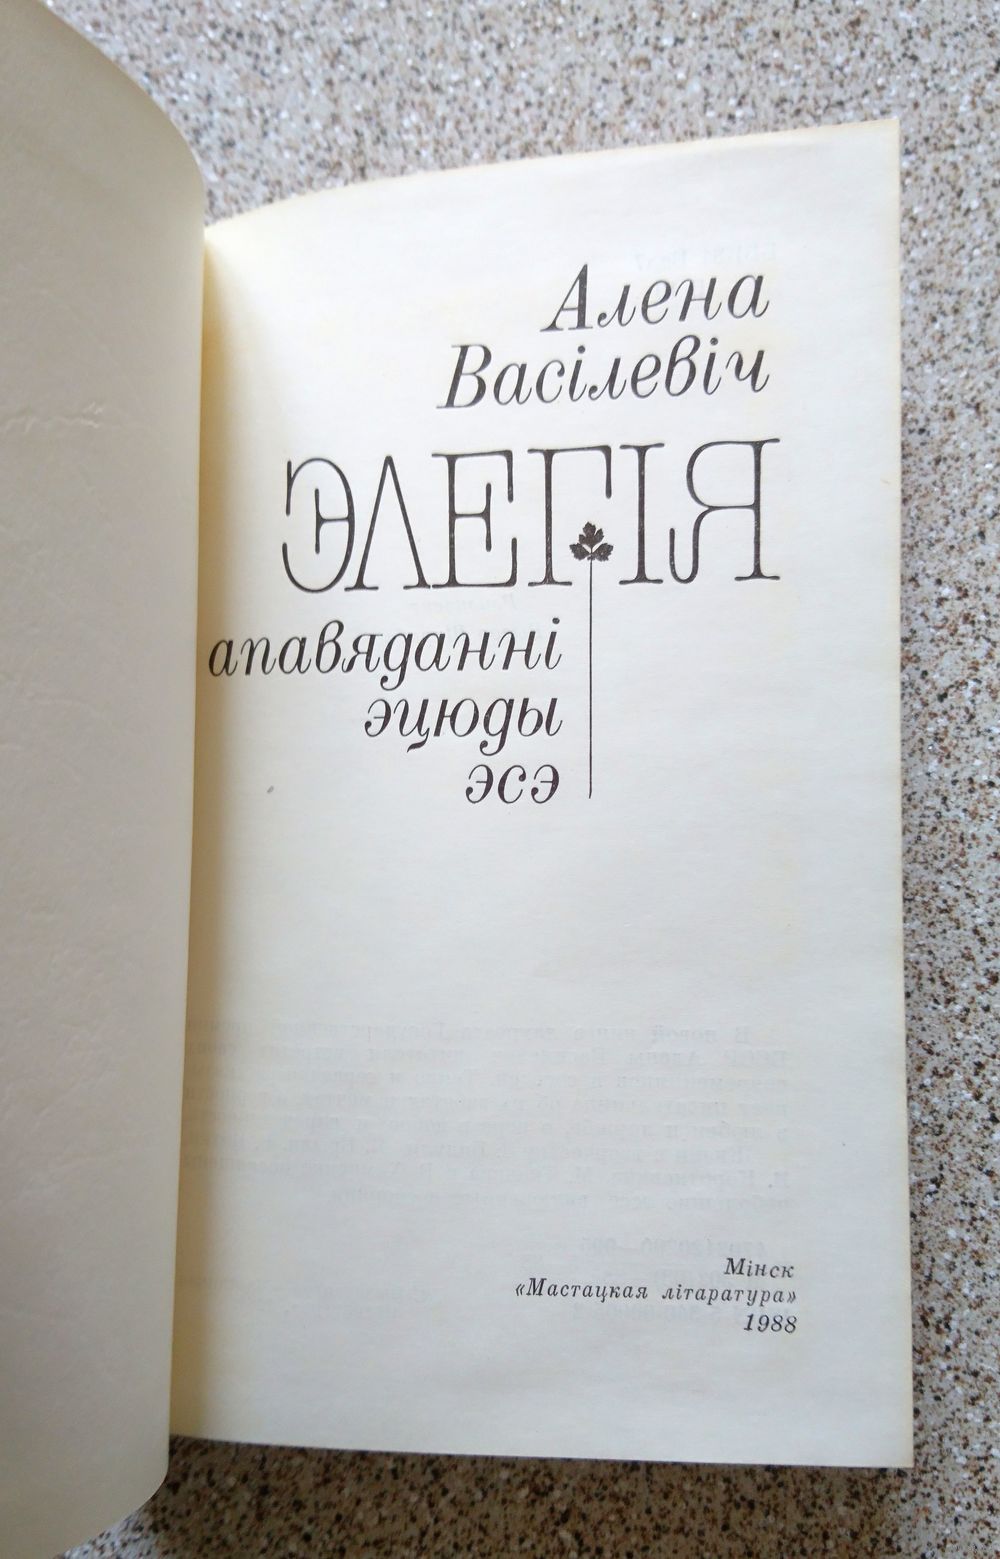 Алена
Васілевіч
ЭЛЕГІЯ
апавяданні
эцюды
эсэ
Мінск
«Мастацкая літаратура»
1988